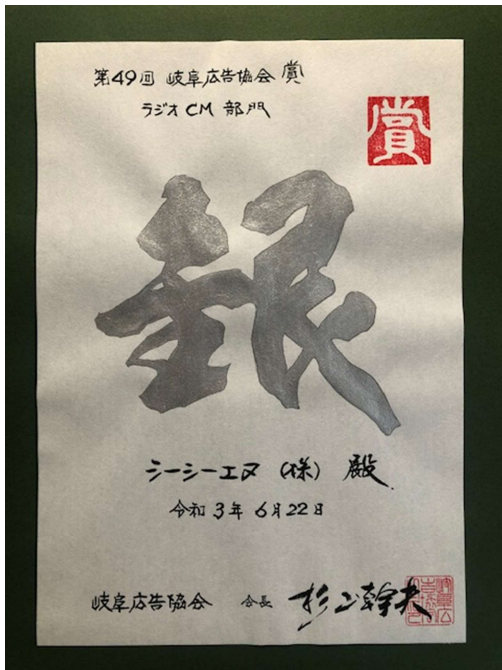 第49回 岐阜広告協会 賞
ラジオCM 部門
賞
銀
シーシーエヌ (様) 殿
令和3年6月22日
岐阜広告協会 会長 杉山幹夫